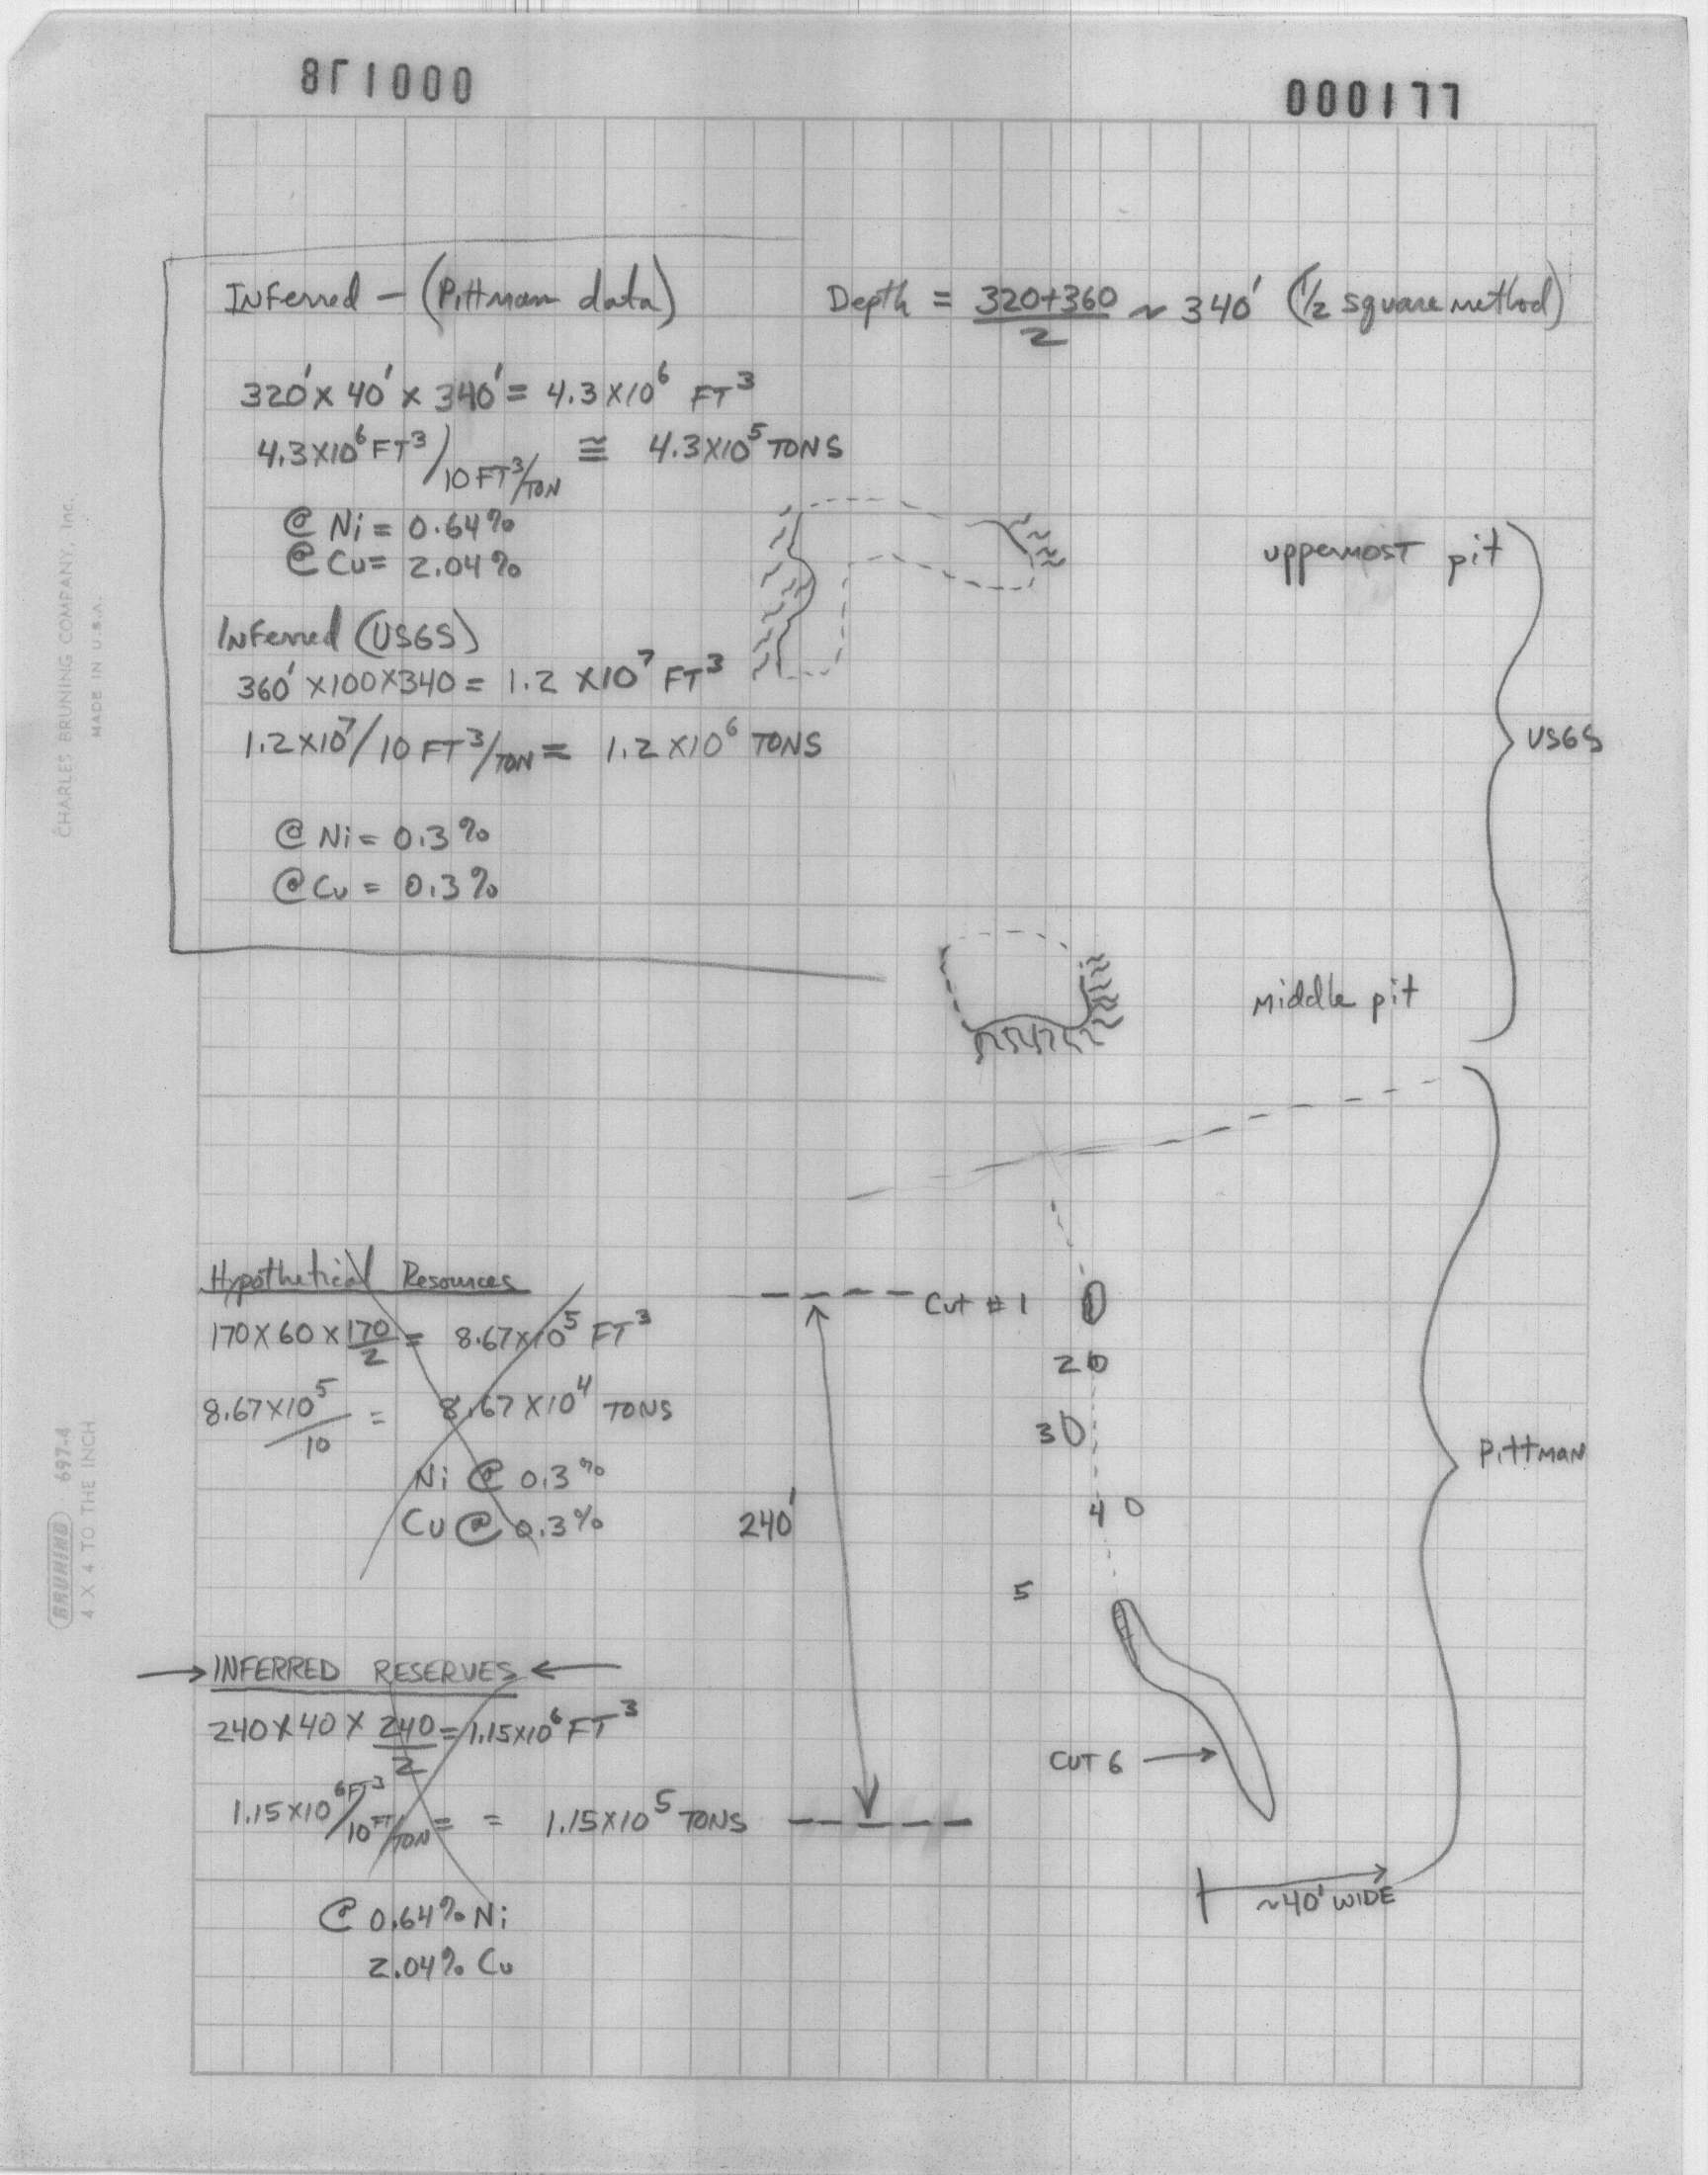 000178
000177
Inferred - (Pittman data)
Depth = 320+360/2 ~ 340' (1/2 square method)
320' x 40' x 340' = 4.3 x 10⁶ FT³
4.3 x 10⁶ FT³/10 FT³/TON ≅ 4.3 x 10⁵ TONS
@ Ni = 0.64%
@ Cu = 2.04%
Inferred (USGS)
360' x 100 x 340 = 1.2 x 10⁷ FT³
1.2 x 10⁷/10 FT³/TON = 1.2 x 10⁶ TONS
@ Ni = 0.3%
@ Cu = 0.3%
uppermost pit
USGS
Middle pit
Hypothetical Resources
170 x 60 x 170/2 = 8.67 x 10⁵ FT³
8.67 x 10⁵/10 = 8.67 x 10⁴ TONS
Ni @ 0.3%
Cu @ 0.3%
Cut # 1
2
3
4
5
240'
Pittman
→ INFERRED RESERVES ←
240 x 40 x 240/2 = 1.15 x 10⁶ FT³
1.15 x 10⁶ FT³/10 FT/TON = = 1.15 x 10⁵ TONS
@ 0.64% Ni
2.04% Cu
CUT 6 →
~40' WIDE
CHARLES BRUNING COMPANY, Inc.
MADE IN U.S.A.
BRUNING 697-4
4 X 4 TO THE INCH